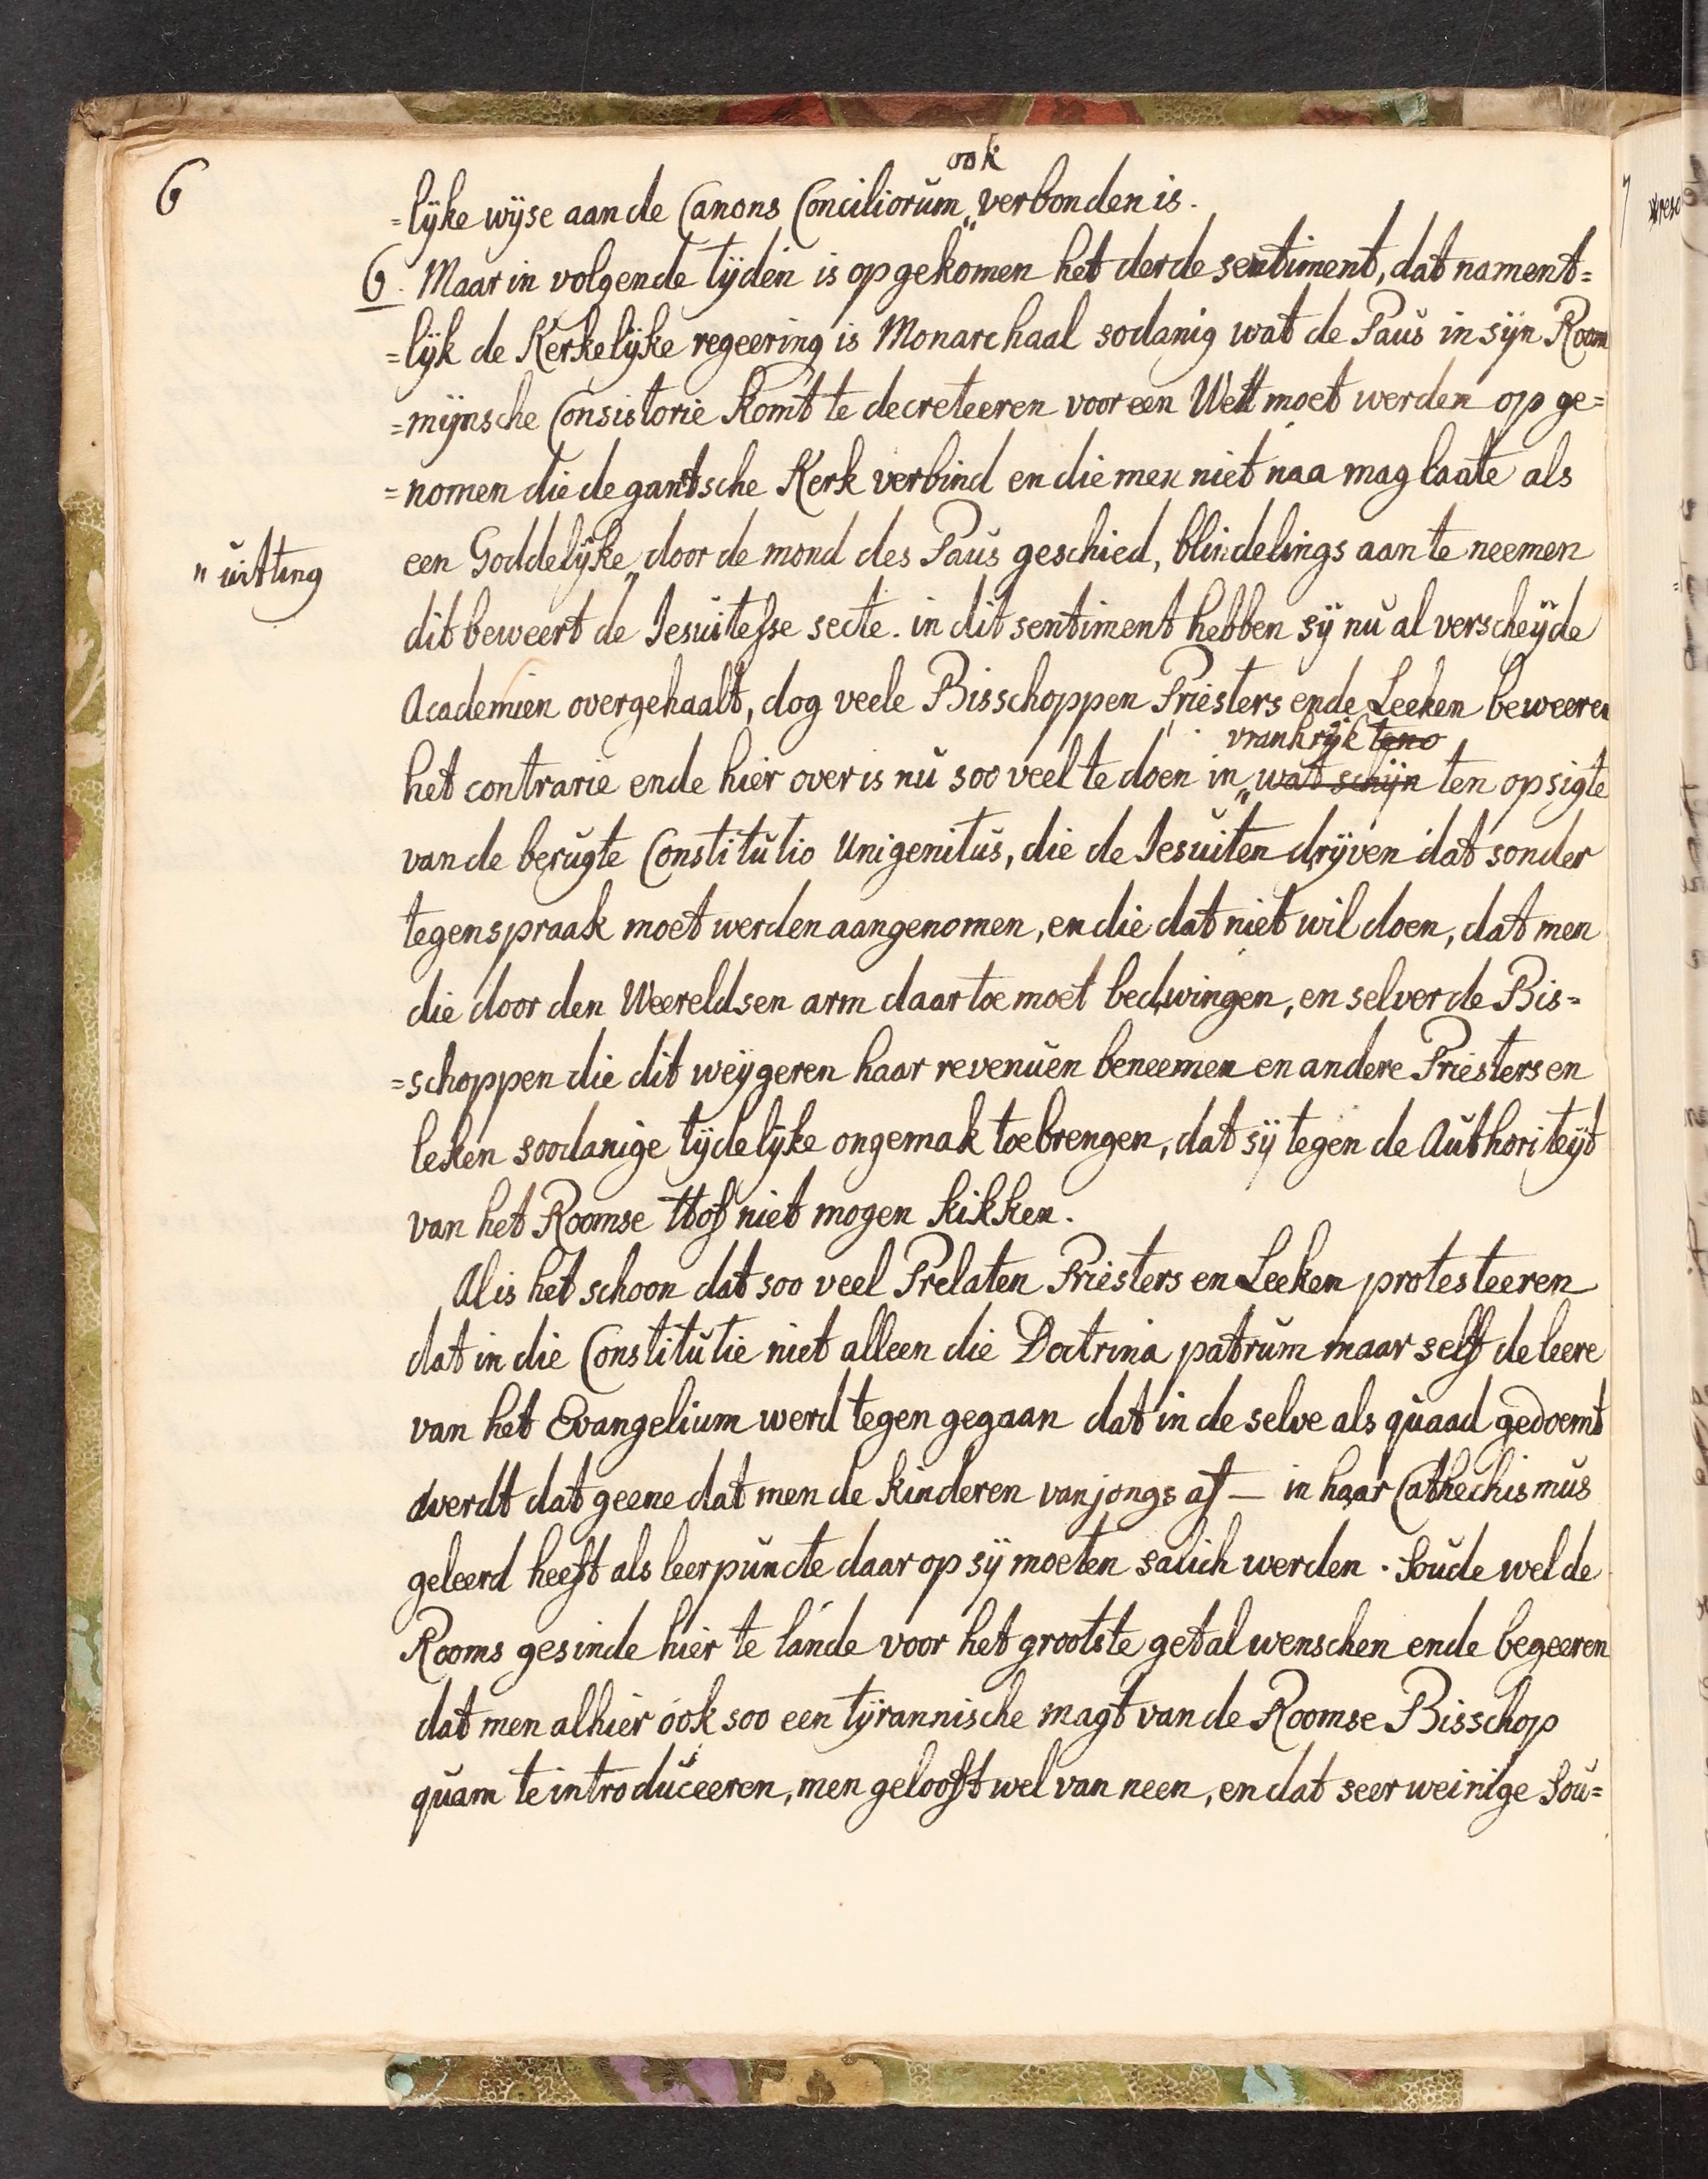 6
ook
=lÿke wÿse aan de Canons Conciliorum „ verbonden is.
6. Maar in volgende tÿden is opgekomen het derde sentiment, dat nament=
=lÿk de Kerkelÿke regeering is Monarchaal sodanig wat de Paus in sÿn Room
=mÿnsche Consistorie komt te decreteeren voor een Wett moet werden op ge=
=nomen die de gantsche Kerk verbind en die men niet naa mag laate als
„ uitting
een Goddelÿke „ door de mond des Paus geschied, blindelings aan te neemen
dit beweert de Jesuitesse secte. in dit sentiment hebben sÿ nu al verscheÿde
Academien overgehaalt, dog veele Bisschoppen Priesters ende Leeken beweeren
vrankrÿk teno
het contrarie ende hier over is nu soo veel te doen in „ wat schÿn ten opsigte
van de berugte Constitutio Unigenitus, die de Jesuiten drÿven dat sonder
tegenspraak moet werden aangenomen, en die dat niet wil doen, dat men
die door den Weereldsen arm daar toe moet bedwingen, en selver de Bis=
=schoppen die dit weÿgeren haar revenuen beneemen en andere Priesters en
leken soodanige tÿdelÿke ongemak toebrengen, dat sÿ tegen de Authoriteÿt
van het Roomse Hof niet mogen kikken.
Al is het schoon dat soo veel Prelaten Priesters en Leeken protesteeren
dat in die Constitutie niet alleen die Doctrina patrum maar self de leere
van het Evangelium werd tegen gegaan dat in de selve als quaad gedoemt
werdt dat geene dat men de kinderen van jongs af — in haar Cathechismus
geleerd heeft als leerpuncte daar op sÿ moeten salich werden. Soude wel de
Rooms gesinde hier te lande voor het grootste getal wenschen ende begeeren
dat men alhier ook soo een tÿrannische magt van de Roomse Bisschop
quam te introduceeren, men gelooft wel van neen, en dat seer weinige Sou=